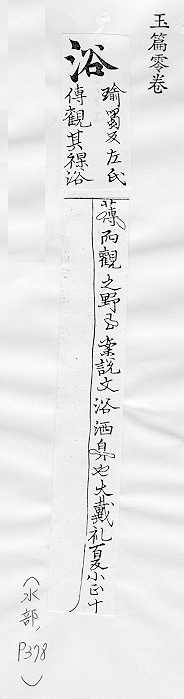 玉篇零卷
浴
瑜蜀反左氏
傳觀其裸浴
薄而觀之野王案說文浴洒身也大戴礼夏小正十
(水部,
P378
)